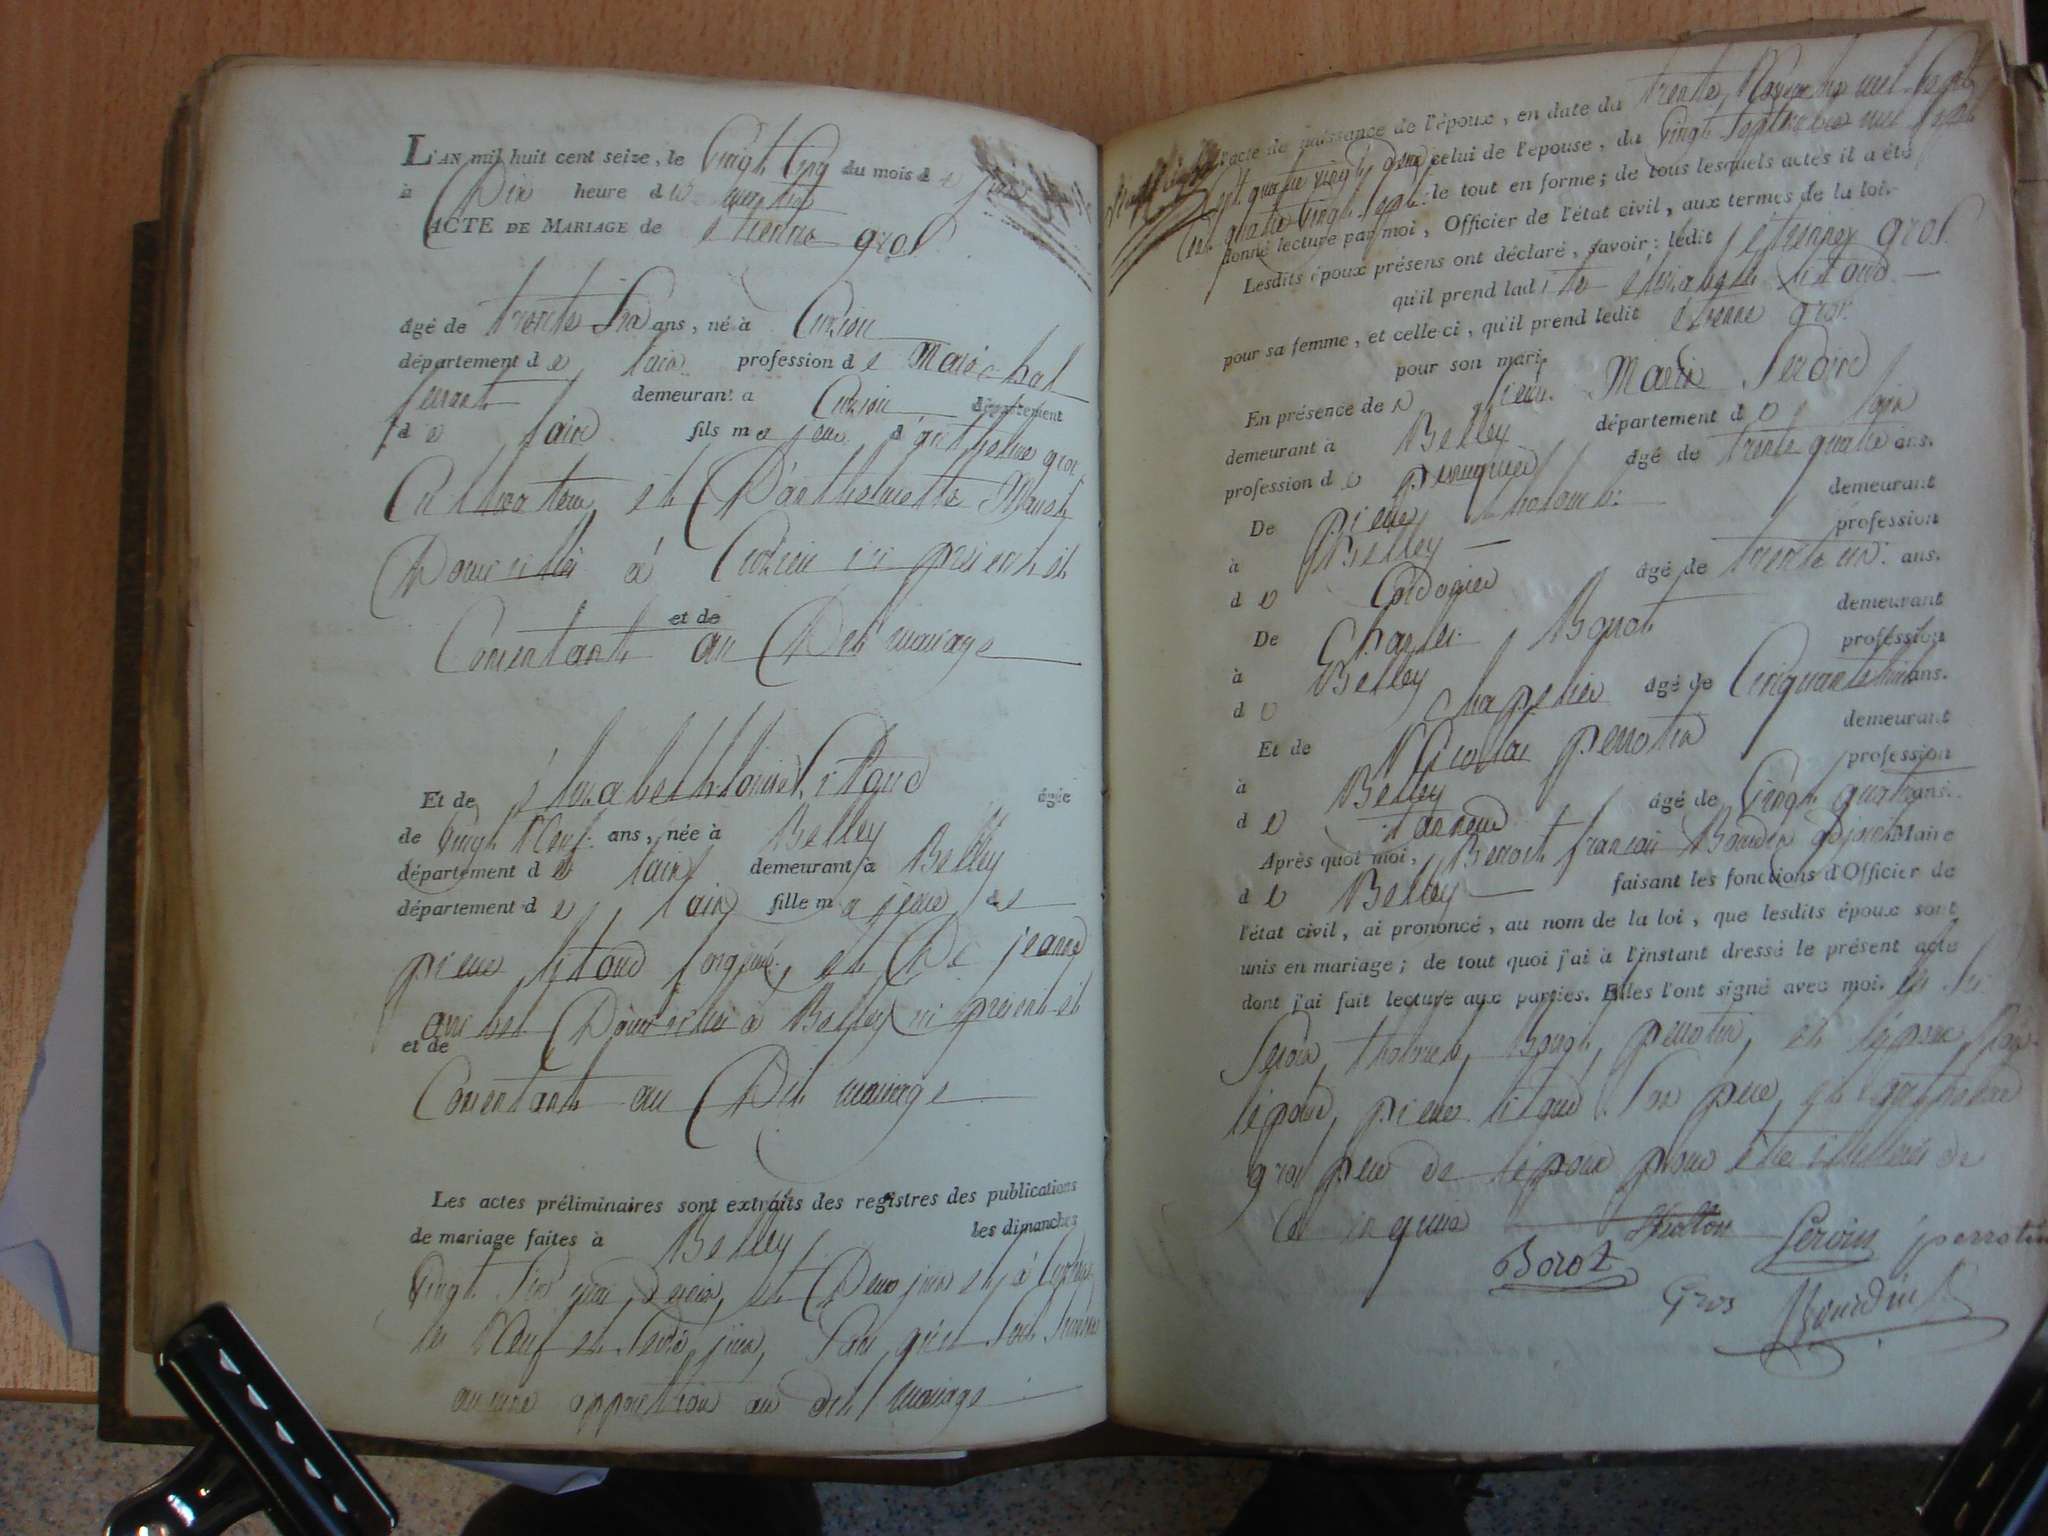 L'AN mil huit cent seize, le Vingt Cinq du mois de juin
à Dix heure du matin
ACTE DE MARIAGE de étienne gros
âgé de trente Six ans, né à Cuzieu
département de lain profession de Maréchal
ferrant demeurant à Cuzieu département
de lain fils majeur d'anthelme gros
Cultivateur et D'anthelmette
Domiciliés à Cuzieu ici présent et
et de
Consentant au Dit mariage
Et de élisabeth louise litaud âgée
de Vingt Neuf ans, née à Belley
département de lain demeurant à Belley
département de lain fille majeure de
pierre litaud et De jeanne
Domiciliés à Belley ici présent et
et de
Consentant au Dit mariage
Les actes préliminaires sont extraits des registres des publications
de mariage faites à Belley les dimanches
Vingt Six mai dernier, et Deux juin et à Cuzieu
les Neuf et Seize juin, Sans qu'il Soit
aucune opposition au dit mariage
l'acte de naissance de l'époux, en date du trente Novembre mil Sept
Cent quatre vingt celui de l'épouse, du Vingt Septembre mil Sept
Cent quatre Vingt Sept le tout en forme; de tous lesquels actes il a été
donné lecture par moi, Officier de l'état civil, aux termes de la loi.
Lesdits époux présens ont déclaré, savoir: ledit étienne gros
qu'il prend ladite élisabeth litaud
pour sa femme, et celle-ci, qu'il prend ledit étienne gros
pour son mari.
En présence de Marie Seroin
demeurant à Belley département de lain
profession de perruquier âgé de trente quatre ans.
De pierre demeurant
à Belley profession
de Cordonier âgé de trente un ans.
De Charles Borot demeurant
à Belley profession
de chapelier âgé de Cinquante huit ans.
Et de Nicolas perrotin demeurant
à Belley profession
de tanneur âgé de Vingt quatre ans.
Après quoi moi, Benoit françois Bourdin adjoint Maire
de Belley faisant les fonctions d'Officier de
l'état civil, ai prononcé, au nom de la loi, que lesdits époux sont
unis en mariage; de tout quoi j'ai à l'instant dressé le présent acte
dont j'ai fait lecture aux parties. Elles l'ont signé avec moi.
Seroin, Borot, perrotin, et lépoux
lépouse, pierre litaud Son pere, et anthelme
gros pere de lépoux pour être illétérés de
ce enquis
Seroin perrotin
Borot
Gros Bourdin